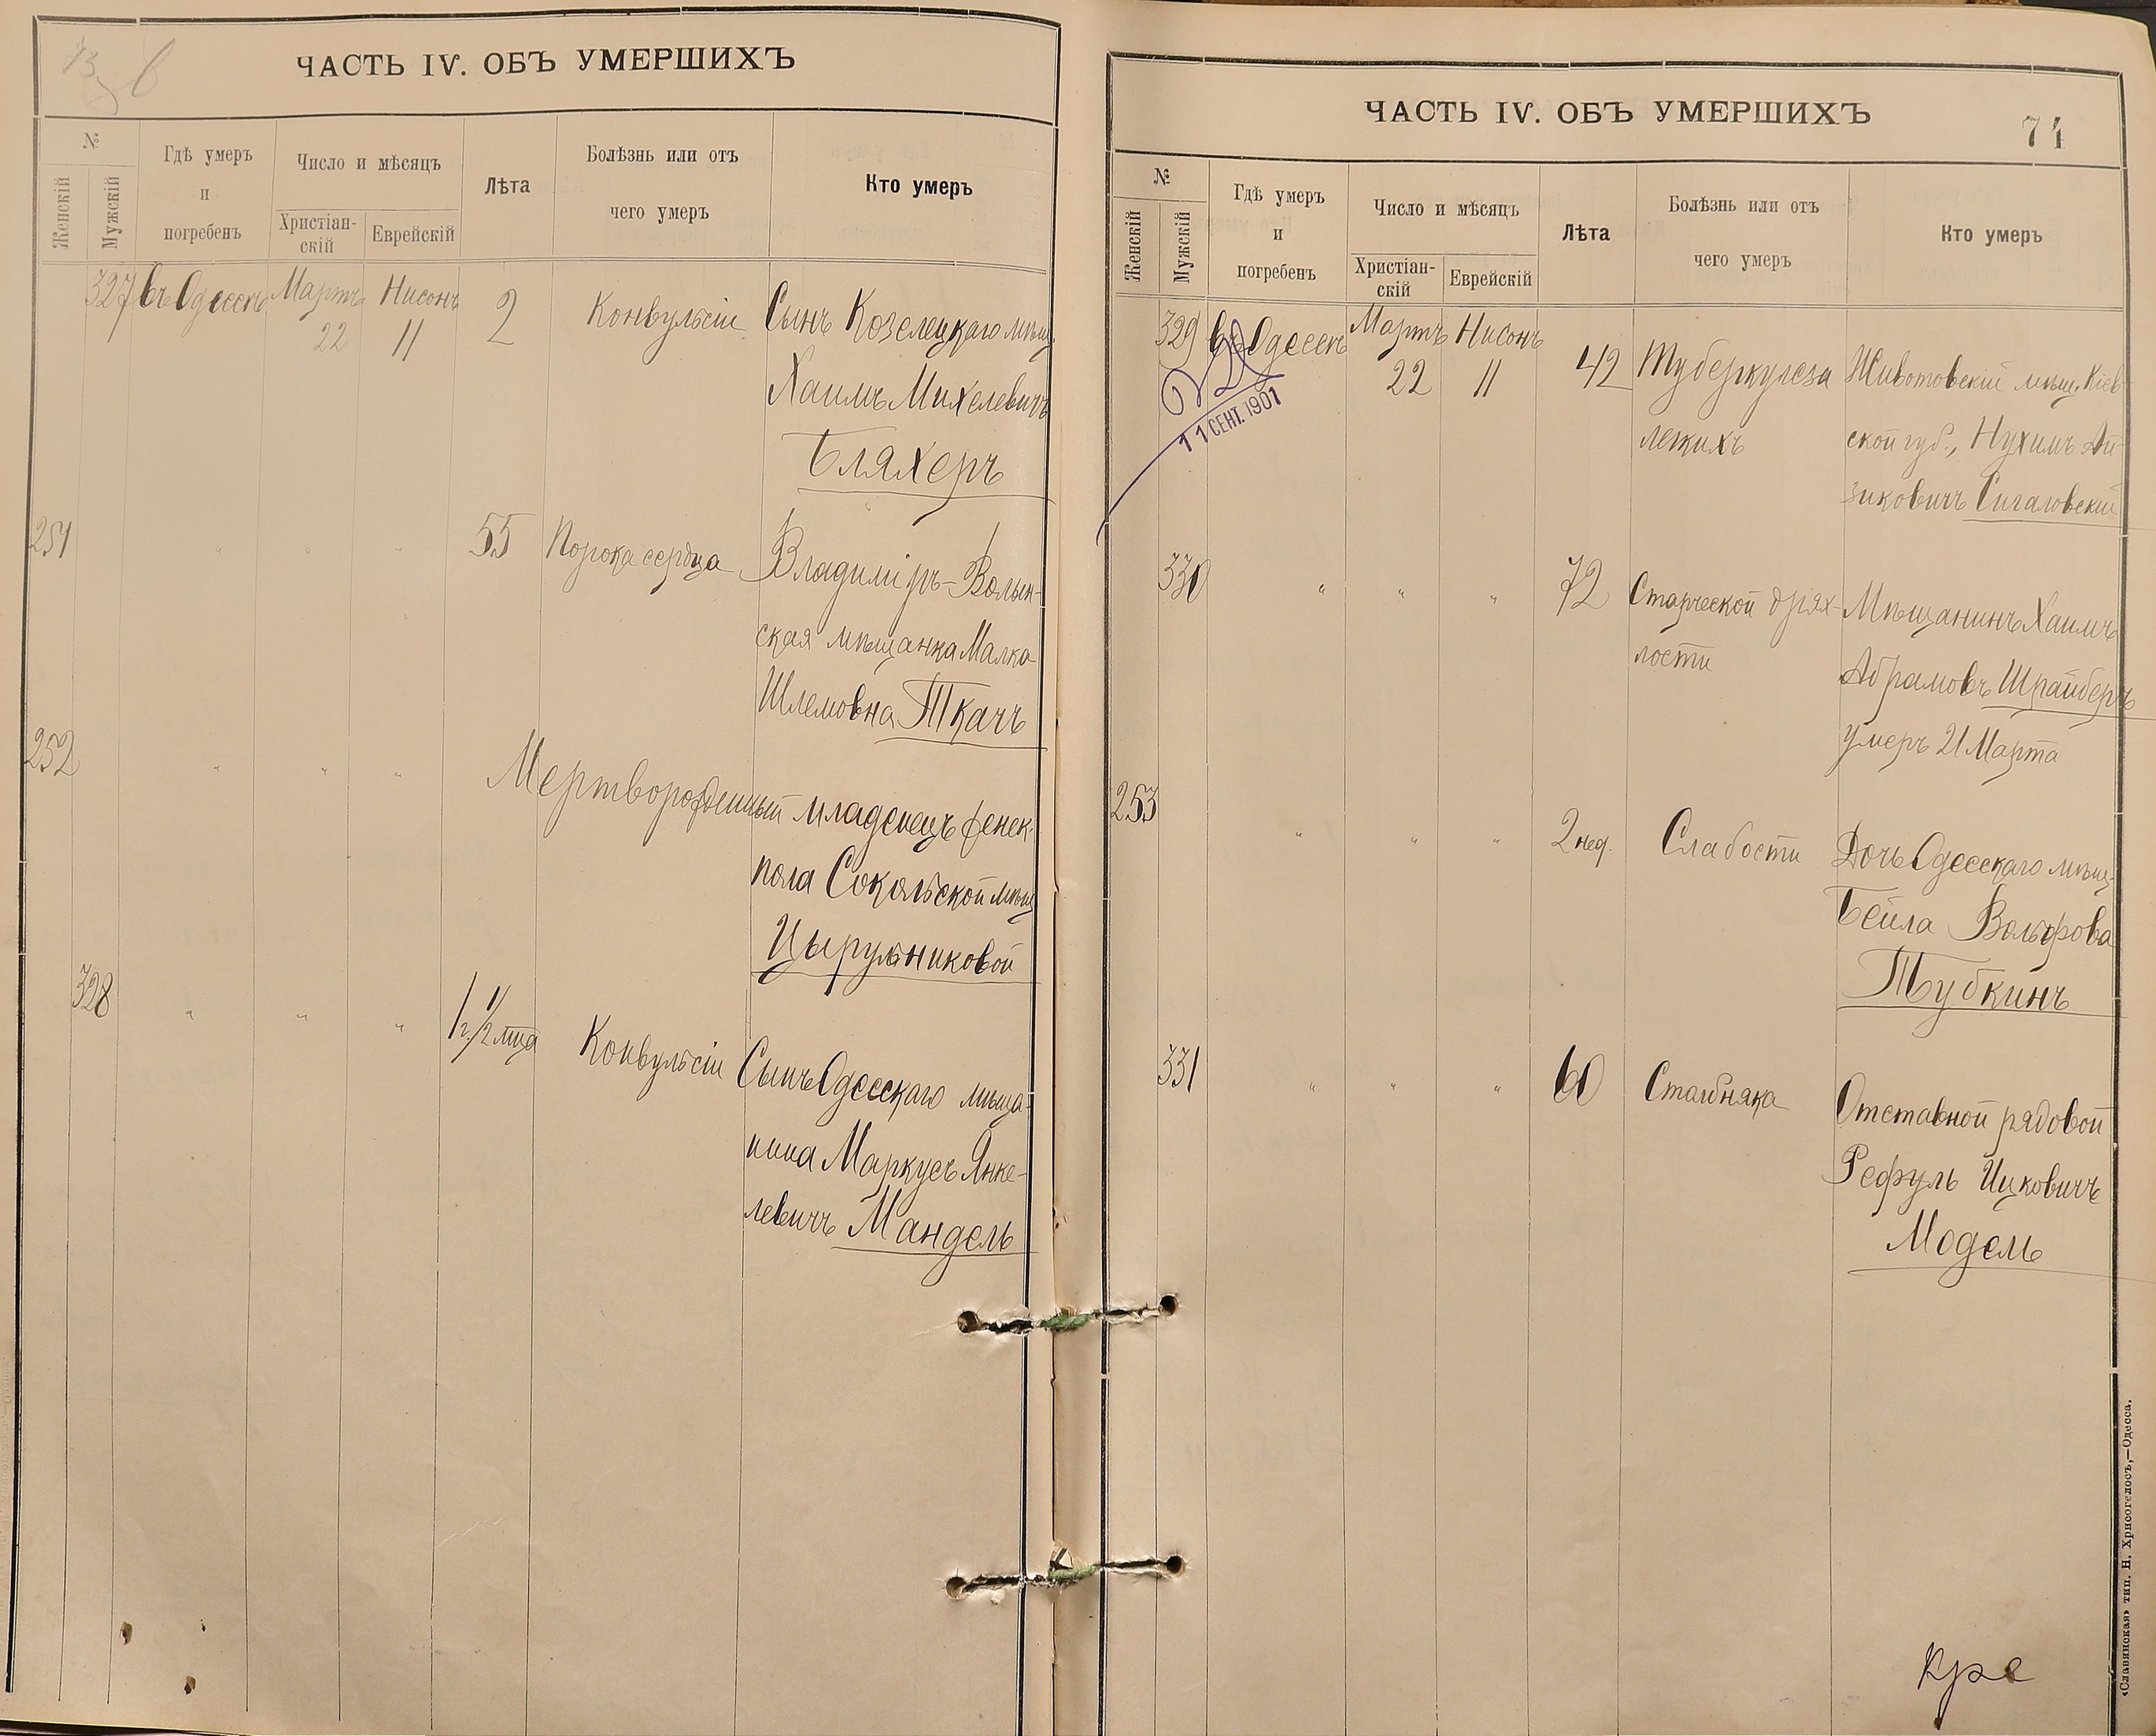 ЧАСТЬ IV. ОБЪ УМЕРШИХЪ
№
Женскій
Мужскій
Гдѣ умеръ
и
погребенъ
Число и мѣсяцъ
Христіан-
скій
Еврейскій
Лѣта
Болѣзнь или отъ
чего умеръ
Кто умеръ
327 въ Одессѣ Мартъ Нисонъ 2 Конвульсіи Сынъ Козелецкаго мѣщ.
22 11
Хаимъ Михелевичъ
Бляхеръ
251 " " " 55 Порока сердца Владиміръ-Волын-
ская мѣщанка Малка
Шлемовна Ткачъ
252 " " " Мертворожденный младенецъ женск.
пола Сокольской мѣщ
Цырульниковой
328 " " " 1 г. 1/2 мца Конвульсіи Сынъ Одесскаго мѣща-
нина Маркусъ Янке-
левичъ Мандель
ЧАСТЬ IV. ОБЪ УМЕРШИХЪ
74
№
Женскій
Мужскій
Гдѣ умеръ
и
погребенъ
Число и мѣсяцъ
Христіан-
скій
Еврейскій
Лѣта
Болѣзнь или отъ
чего умеръ
Кто умеръ
329 въ Одессѣ Мартъ Нисонъ
22 11 42 Туберкулеза Животовскій мѣщ. Кіев-
легкихъ ской губ., Нухимъ Ай-
зиковичъ Сигаловскій
11 СЕНТ. 1901
330 " " " 72 Старческой дрях- Мѣщанинъ Хаимъ
лости Абрамовъ Шрайберъ
умеръ 21 Марта
253 " " " 2 нед. Слабости Дочь Одесскаго мѣщ.
Бейла Вольфова
Тубкинъ
331 " " " 60 Столбняка Отставной рядовой
Рефуль Ицковичъ
Модель
«Славянская» тип. Н. Хрисогелосъ,—Одесса.